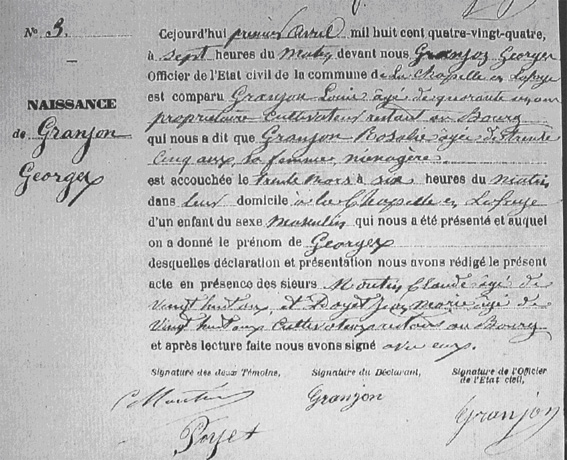 N.° 3.
NAISSANCE
de Granjon
Georges
Cejourd'hui premier Avril mil huit cent quatre-vingt-quatre,
à sept heures du Matin devant nous Granjon Georges
Officier de l'Etat civil de la commune de La Chapelle en Lafaye
est comparu Granjon Louis âgé de quarante un ans
propriétaire Cultivateur restant au Bourg
qui nous a dit que Granjon Rosalie âgée de trente
Cinq ans, sa femme ménagère
est accouchée le trente Mars à six heures du Matin
dans leur domicile à La Chapelle en Lafaye
d'un enfant du sexe Masculin qui nous a été présenté et auquel
on a donné le prénom de Georges
desquelles déclaration et présentation nous avons rédigé le présent
acte en présence des sieurs Moutin Claude âgé de
vingt huit ans, et Poyet Jean Marie âgé de
vingt huit ans Cultivateurs restans au Bourg
et après lecture faite nous avons signé avec eux.
Signature des deux Témoins, Signature du Déclarant, Signature de l'Officier
de l'Etat civil,
C Moutin Granjon Granjon
Poyet